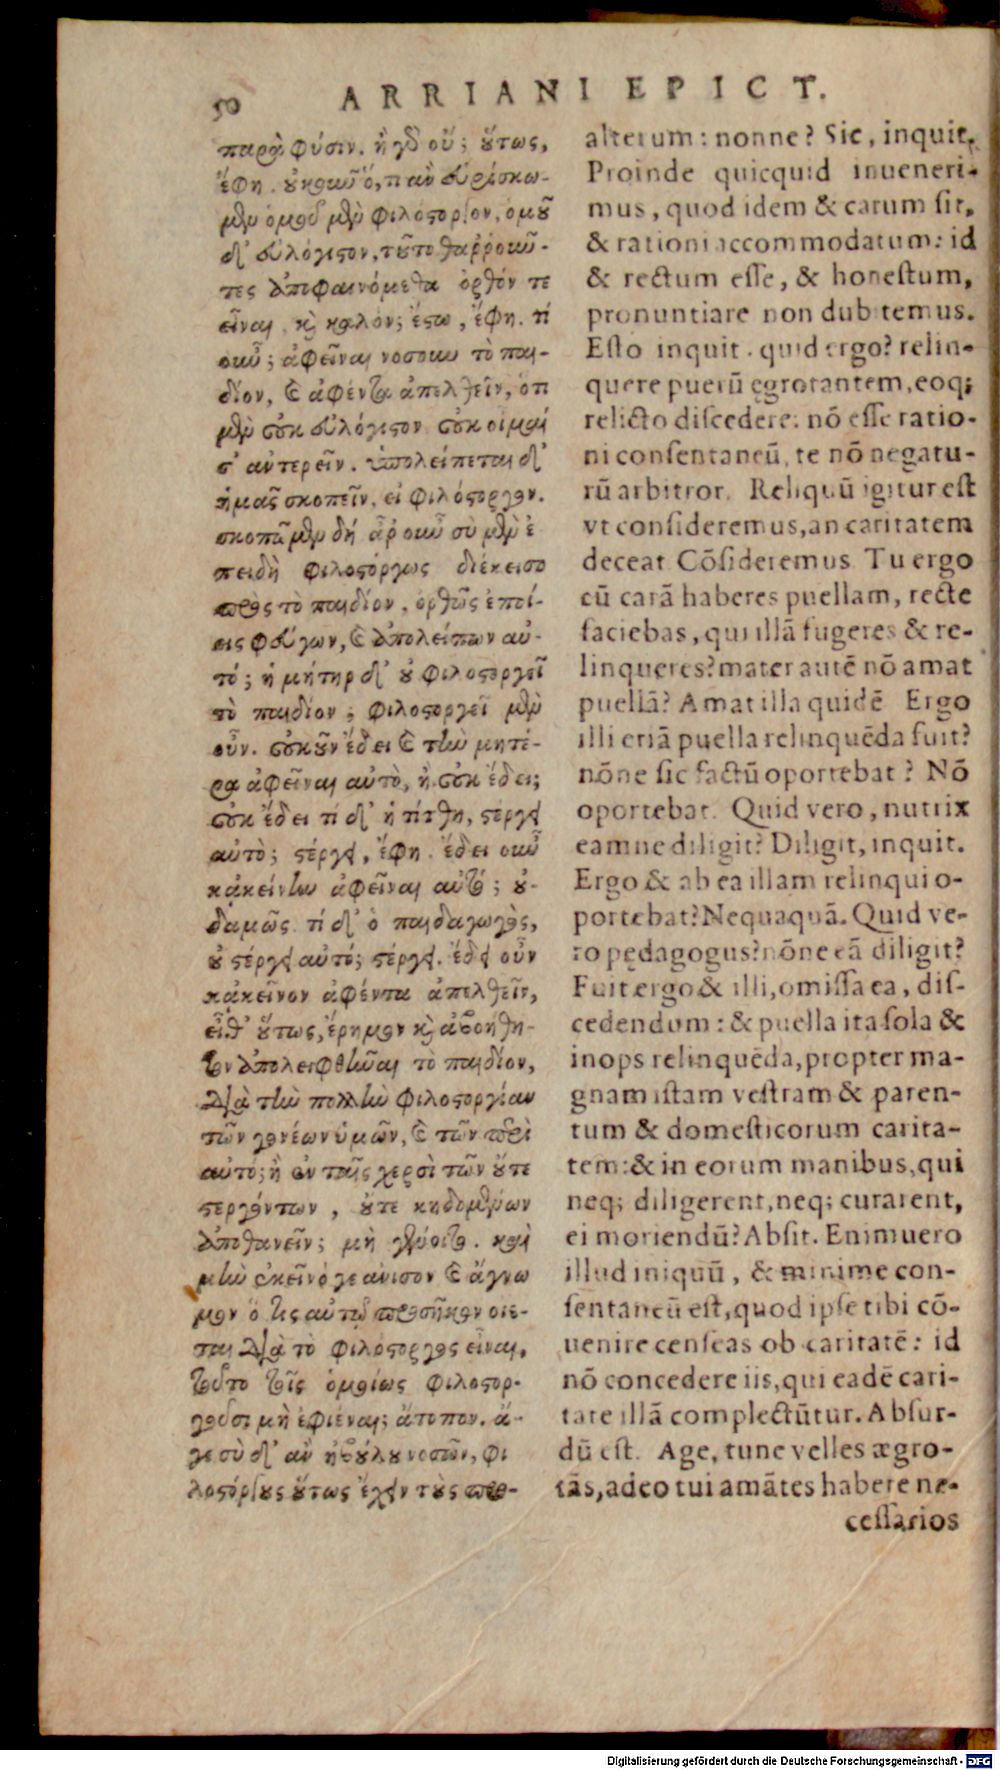 50 ARRIANI EPICT.
παρὰ φύσιν. ἢ γὸ οὔ; οὕτως,
ἔφη. οὐκοῦν ὅ, τι ἂν εὑρίσκω-
μεν ὁμοῦ μὲν φιλόστοργον, ὁμοῦ
δ' εὐλόγιστον, τοῦτο θαῤῥοῦν-
τες ἀποφαινόμεθα ὀρθόν τε
εἶναι καὶ καλόν; ἔστω, ἔφη. τί
οὖν; ἀφεῖναι νοσοῦν τὸ παι-
δίον, καὶ ἀφέντα ἀπελθεῖν, ὅτι
μὲν οὐκ εὐλόγιστον οὐκ οἶμαί
σ' ἀντερεῖν. ὑπολείπεται δ'
ἡμᾶς σκοπεῖν, εἰ φιλόστοργον.
σκοπῶμεν δή ἆρ' οὖν σὺ μὲν ἐ
πειδὴ φιλοστόργως διέκεισο
πρὸς τὸ παιδίον, ὀρθῶς ἐποί-
εις φεύγων, καὶ ἀπολείπων αὐ-
τό; ἡ μήτηρ δ' οὐ φιλοστοργεῖ
τὸ παιδίον; φιλοστοργεῖ μὲν
οὖν. οὐκοῦν ἔδει καὶ τὴν μητέ-
ρα ἀφεῖναι αὐτὸ, ἢ οὐκ ἔδει;
οὐκ ἔδει τί δ' ἡ τίτθη, στέργει
αὐτὸ; στέργει, ἔφη. ἔδει οὖν
κἀκείνην ἀφεῖναι αὐτό; οὐ-
δαμῶς. τί δ' ὁ παιδαγωγὸς,
οὐ στέργει αὐτό; στέργει. ἔδει οὖν
κἀκεῖνον ἀφέντα ἀπελθεῖν,
εἶθ' οὕτως, ἔρημον καὶ ἀβοήθη-
τον ἀπολειφθῆναι τὸ παιδίον,
διὰ τὴν πολλὴν φιλοστοργίαν
τῶν γονέων ὑμῶν, καὶ τῶν περὶ
αὐτό; ἢ ἐν ταῖς χερσὶ τῶν οὔτε
στεργόντων, οὔτε κηδομένων
ἀποθανεῖν; μὴ γένοιτο. καὶ
μὴν ἐκεῖνό γε ἄνισον καὶ ἄγνω
μον ὅ τις αὐτῷ προσῆκον οἴε-
ται διὰ τὸ φιλόστοργος εἶναι,
τοῦτο τοῖς ὁμοίως φιλοστορ-
γοῦσι μὴ ἐφιέναι; ἄτοπον. ἄ-
γε σὺ δ' ἂν ἠβούλου νοσῶν, φι
λοστόργους οὕτως ἔχειν τοὺς προ-
alterum: nonne? Sic, inquit,
Proinde quicquid inueneri-
mus, quod idem & carum sit,
& rationi accommodatum: id
& rectum esse, & honestum,
pronuntiare non dubitemus.
Esto inquit. quid ergo? relin-
quere puerū ęgrotantem, eoq;
relicto discedere: nō esse ratio-
ni consentaneū, te nō negatu-
rū arbitror. Reliquū igitur est
vt consideremus, an caritatem
deceat Cōsideremus Tu ergo
cū carā haberes puellam, recte
faciebas, qui illā fugeres & re-
linqueres? mater autē nō amat
puellā? Amat illa quidē Ergo
illi etiā puella relinquēda fuit?
nōne sic factū oportebat? Nō
oportebat. Quid vero, nutrix
eamne diligit? Diligit, inquit.
Ergo & ab ea illam relinqui o-
portebat? Nequaquā. Quid ve-
ro pędagogus? nōne eā diligit?
Fuit ergo & illi, omissa ea, dis-
cedendum: & puella ita sola &
inops relinquēda, propter ma-
gnam istam vestram & paren-
tum & domesticorum carita-
tem: & in eorum manibus, qui
neq; diligerent, neq; curarent,
ei moriendū? Absit. Enimuero
illud iniquū, & minime con-
sentaneū est, quod ipse tibi cō-
uenire censeas ob caritatē: id
nō concedere iis, qui eadē cari-
tate illā complectūtur. Absur-
dū est. Age, tune velles ægro-
tās, adeo tui amātes habere ne-
cessarios
Digitalisierung gefördert durch die Deutsche Forschungsgemeinschaft - DFG